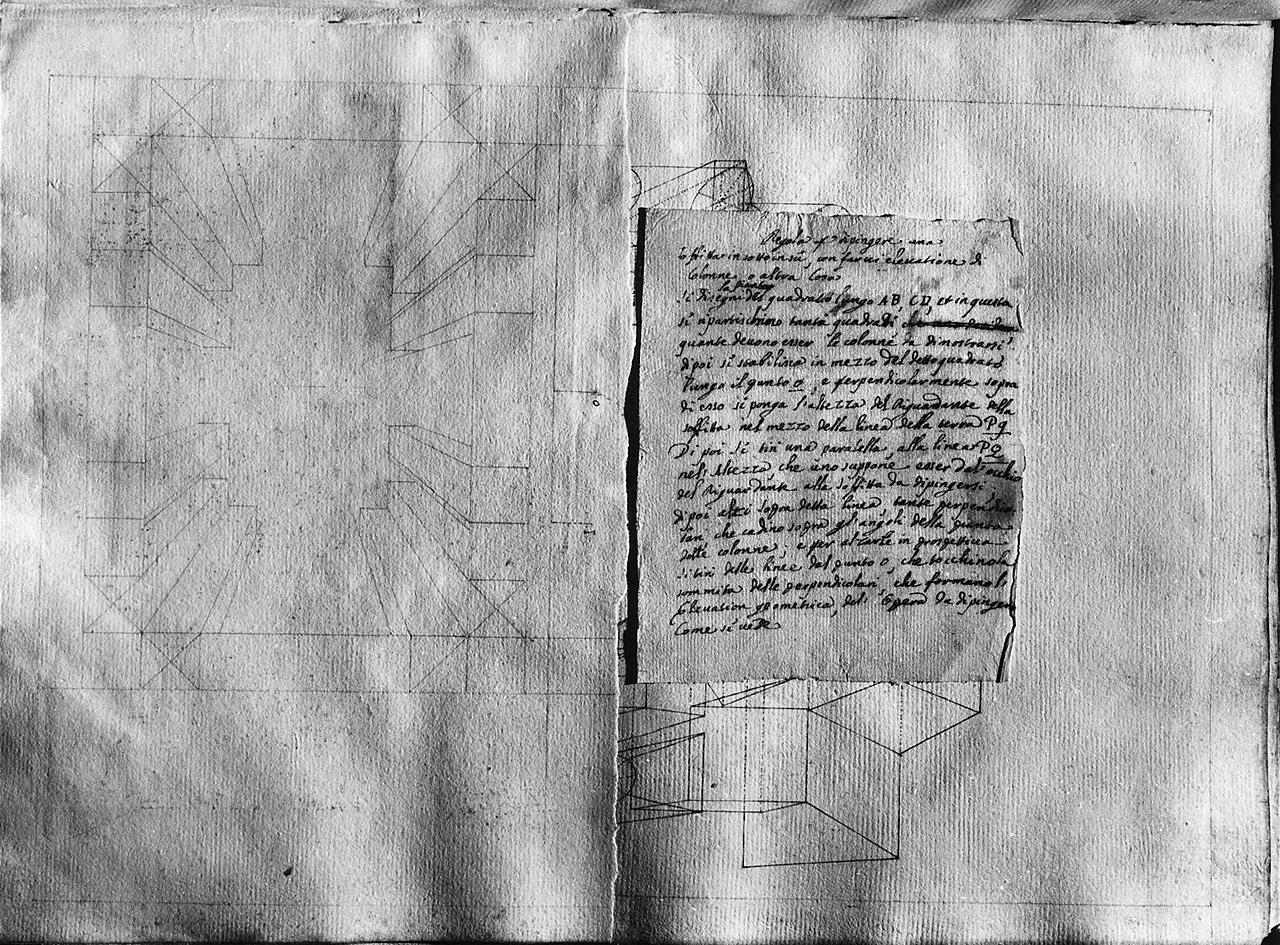 Regola p dipingere una
soffitta in sotto in sù, con farui eleuatione di
Colonne, o altra Cosa
la pianta
Si disegni del quadrato lungo AB, CD, et in questa
si ripartischino tanti quadrati
quante deuono esser le colonne da dimostrarsi.
di poi si stabilisca in mezzo del detto quadrato
lungo il punto o, e perpendicolarmente sopra
di esso si ponga l'altezza del Riguardante della
soffitta nel mezzo della linea della terra PQ
Di poi si tiri una paralella, alla linea PQ
nell'altezza, che uno suppone esser dal occhio
del Riguardante alla soffitta da dipingersi
di poi alzi sopra detta linea tante perpendico
lari che cadino sopra gl'angoli della pianta
dalle colonne; e per alzarle in prospettiua
si tiri delle linee dal punto o, che tocchino la
sommità delle perpendicolari, che formano l'
Eleuation geometrica, dell' Opera da dipinger
Come si uede
o